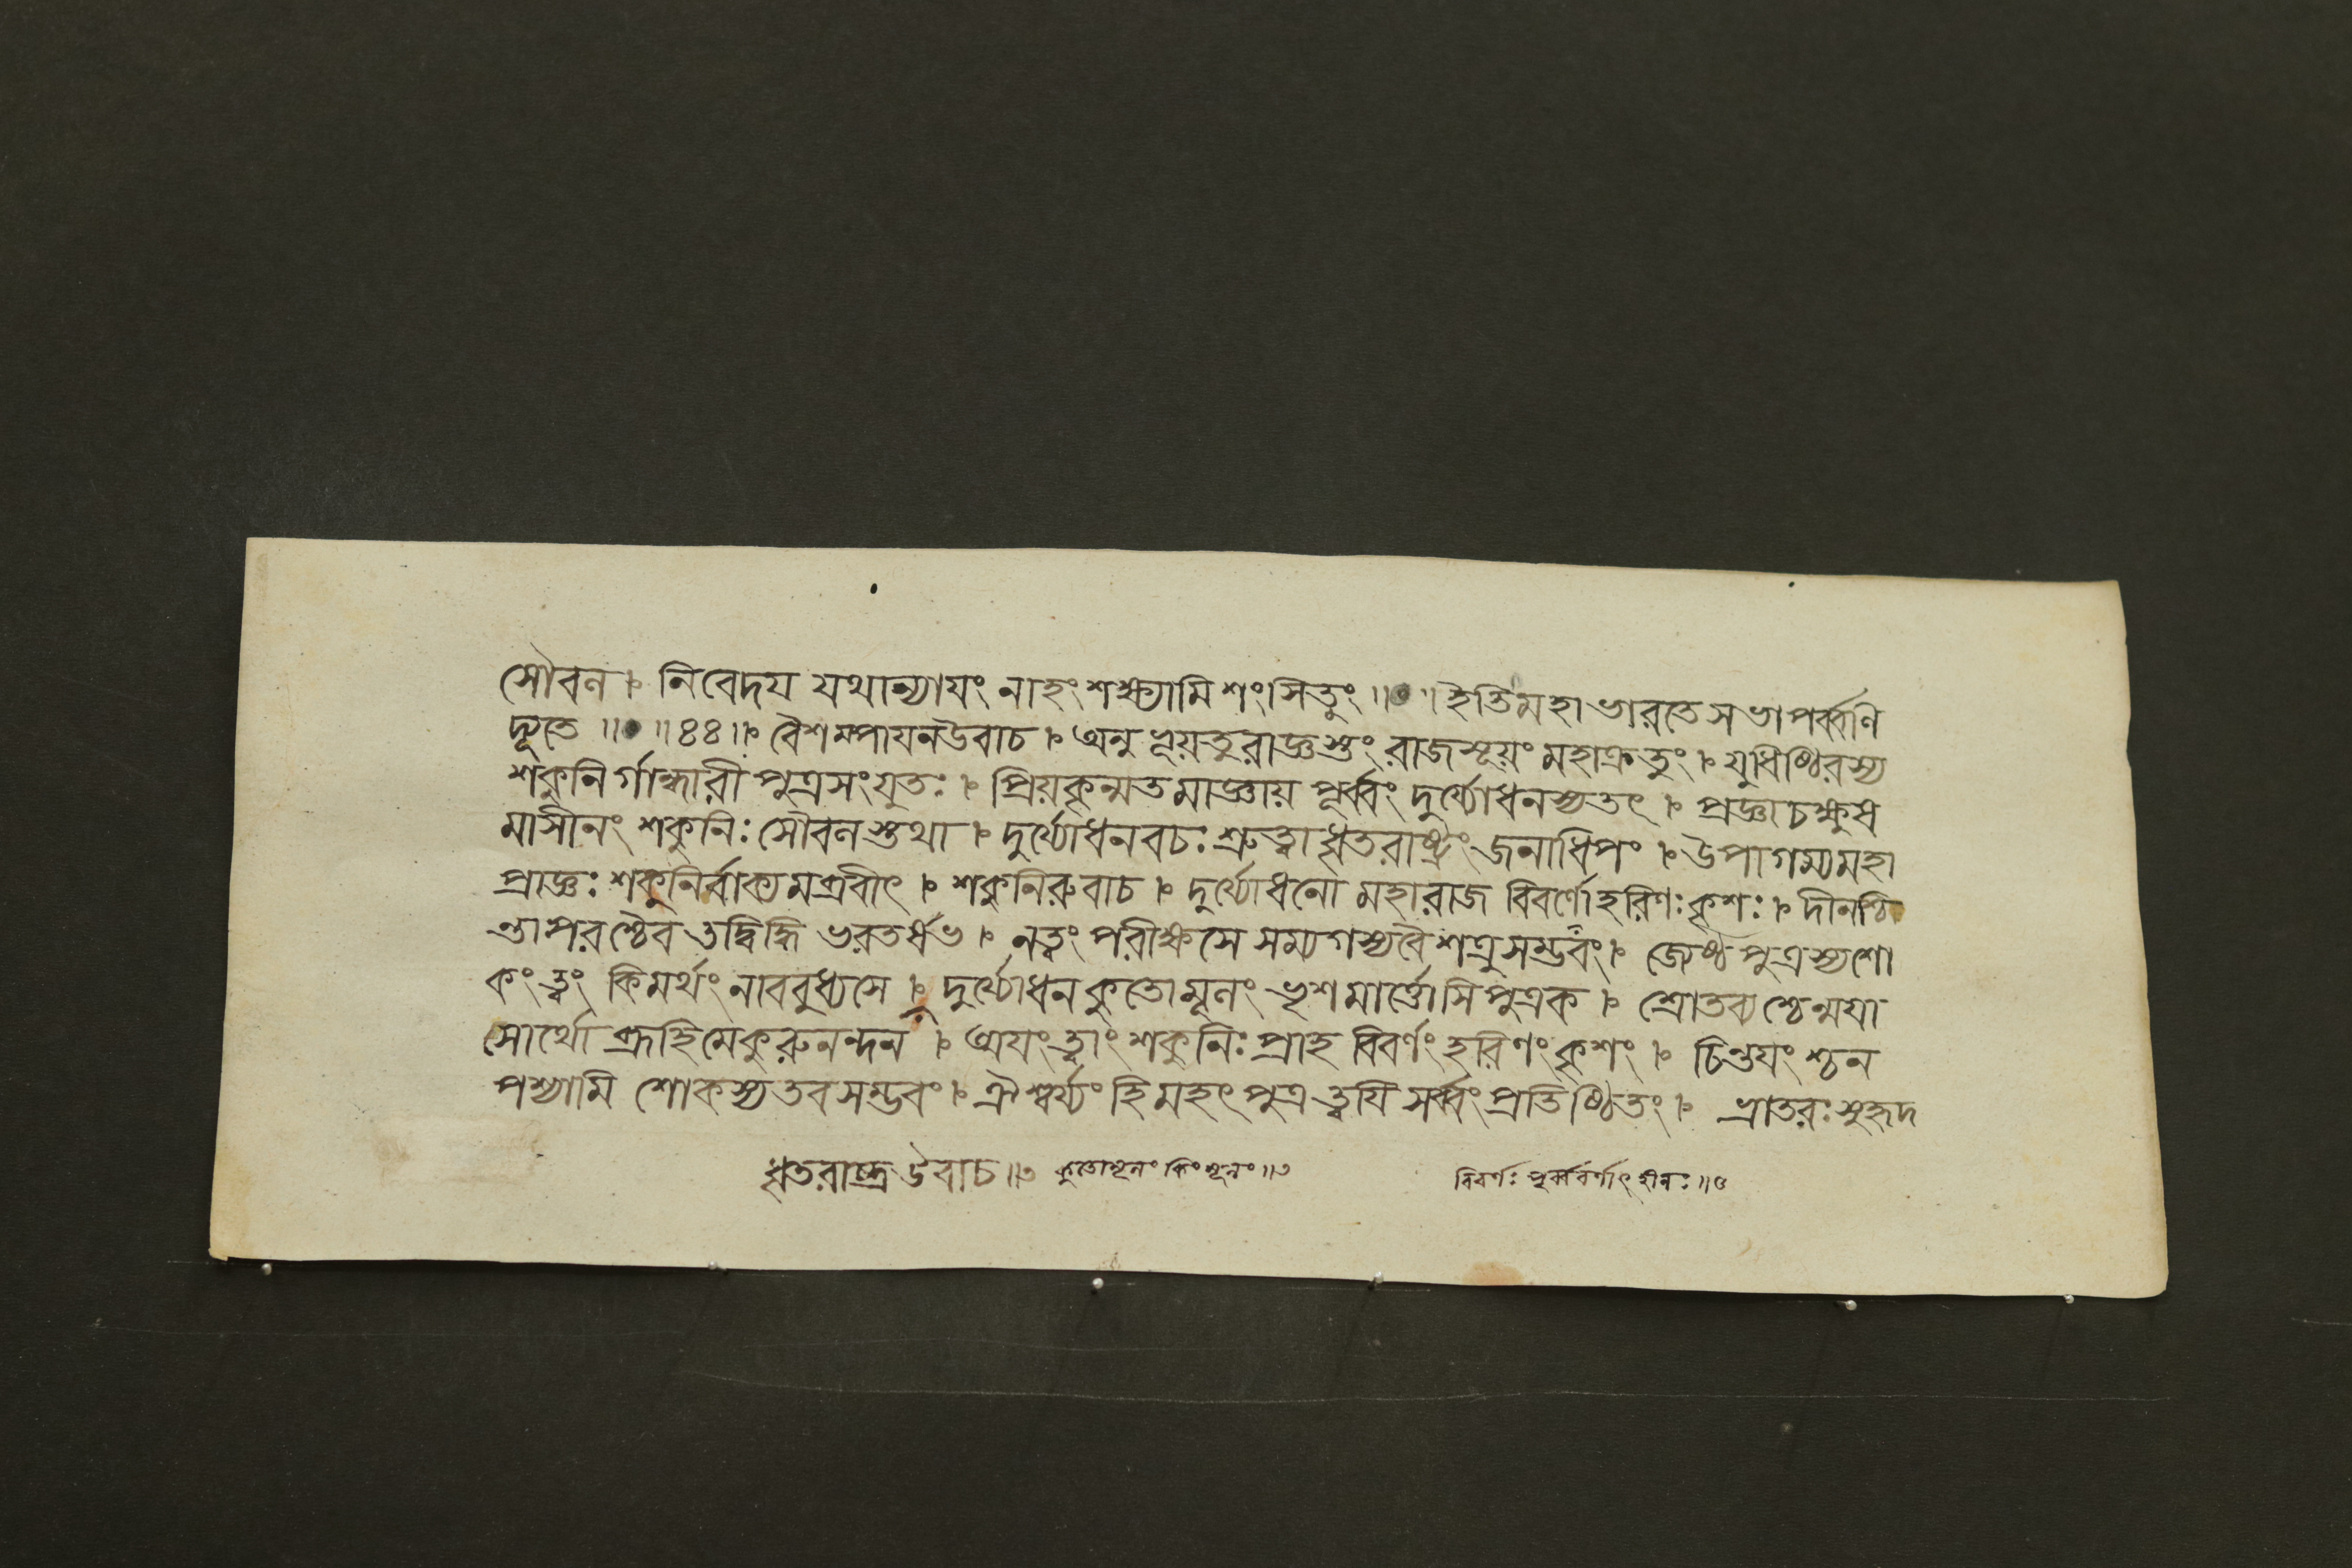 সৌবল । নিবেদয যথান্যাযং নাহং শক্ষ্যামি শংসিতুং ॥০॥ ইতিমহাভারতে সভাপর্ব্বণি
দ্যূতে ॥০॥৪৪॥ বৈশম্পাযনউবাচ । অনুভূয়তুরাজ্ঞস্তং রাজসূয়ং মহাক্রতুং । যুধিষ্ঠিরস্য
শকুনির্গান্ধারী পুত্রসংযুতঃ । প্রিয়কৃন্মতমাজ্ঞায় পূর্ব্বং দুর্য্যোধনস্যতৎ । প্রজ্ঞাচক্ষুষ
মাসীনং শকুনিঃ সৌবলস্তথা । দুর্য্যোধনবচঃ শ্রুত্বা ধৃতরাষ্ট্রং জনাধিপং । উপাগম্যমহা
প্রাজ্ঞঃ শকুনির্বাক্যমব্রবীৎ । শকুনিরুবাচ । দুর্য্যোধনো মহারাজ বিবর্ণোহরিণঃ কৃশঃ । দীনশ্চি
ন্তাপরশ্চৈব তদ্বিদ্ধি ভরতর্ষভ । নত্বং পরীক্ষসে সম্যগস্যবৈ শত্রুসম্ভবং । জ্যেষ্ঠপুত্রস্যশো
কংত্বং কিমর্থং নাববুধ্যসে । দুর্য্যোধন কুতোমূলং ভৃশমার্ত্তোসি পুত্রক । শ্রোতব্যশ্চেন্ময়া
সোর্থো ব্রূহিমেকুরুনন্দন । অযংত্বাং শকুনিঃ প্রাহ বিবর্ণং হরিণং কৃশং । চিন্তযংশ্চন
পশ্যামি শোকস্যতবসম্ভবং । ঐশ্বর্য্যং হিমহৎ পুত্র ত্বযি সর্ব্বং প্রতিষ্ঠিতং । ভ্রাতরঃ সুহৃদ
ধৃতরাষ্ট্র উবাচ ॥৩ কুতোমূলং কিং মূলং ॥৩ বিবর্ণঃ পূর্ব্ববর্ণাৎ হীনঃ ॥৫